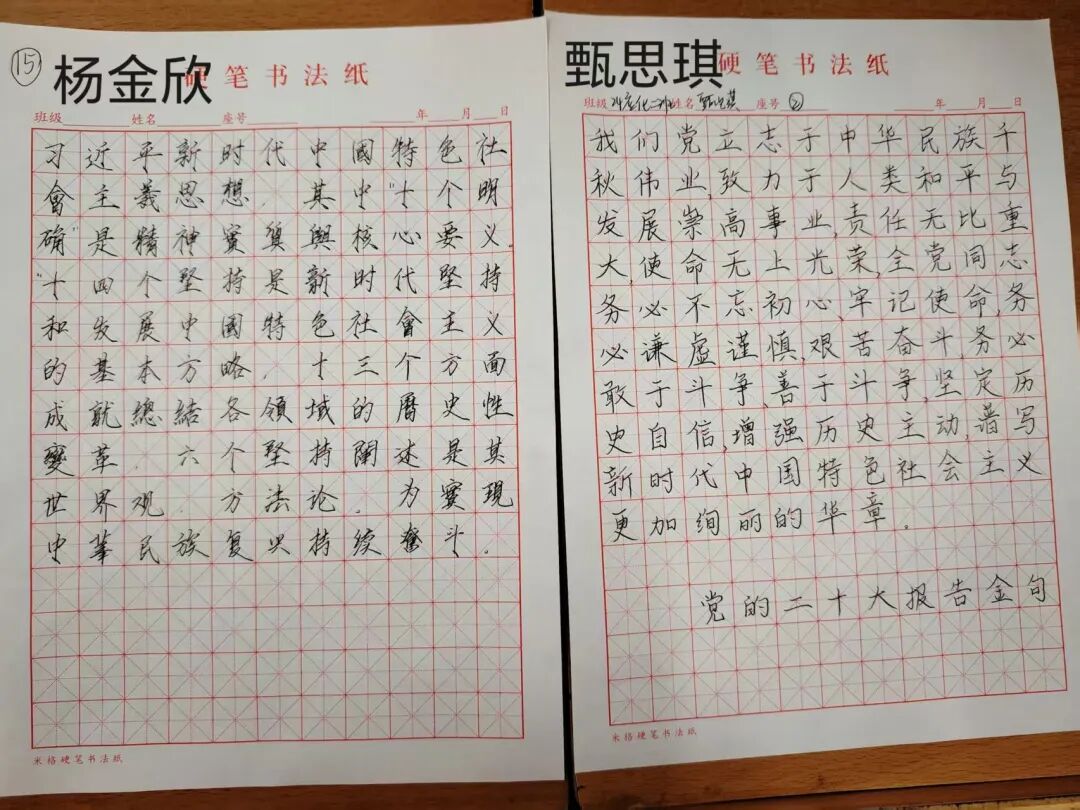 15
杨金欣
硬笔书法纸
班级 姓名 座号 年 月 日
习近平新时代中國特色社
會主義思想.其中"十个明
确"是精神實質與核心要义.
"十四个堅持是新时代堅持
和发展中國特色社會主义
的基本方略.十三个方面
成就總結各領域的曆史性
變革.六个堅持闡述是其
世界观 方法论.为實現
中華民族复兴持续奮斗.
米格硬笔书法纸
甄思琪
硬笔书法纸
班级 姓名 甄思琪 座号 2 年 月 日
我们党立志于中华民族千
秋伟业,致力于人类和平与
发展崇高事业,责任无比重
大,使命无上光荣,全党同志
务必不忘初心,牢记使命,务
必谦虚谨慎,艰苦奋斗,务必
敢于斗争,善于斗争,坚定历
史自信,增强历史主动,谱写
新时代中国特色社会主义
更加绚丽的华章.
党的二十大报告金句
米格硬笔书法纸